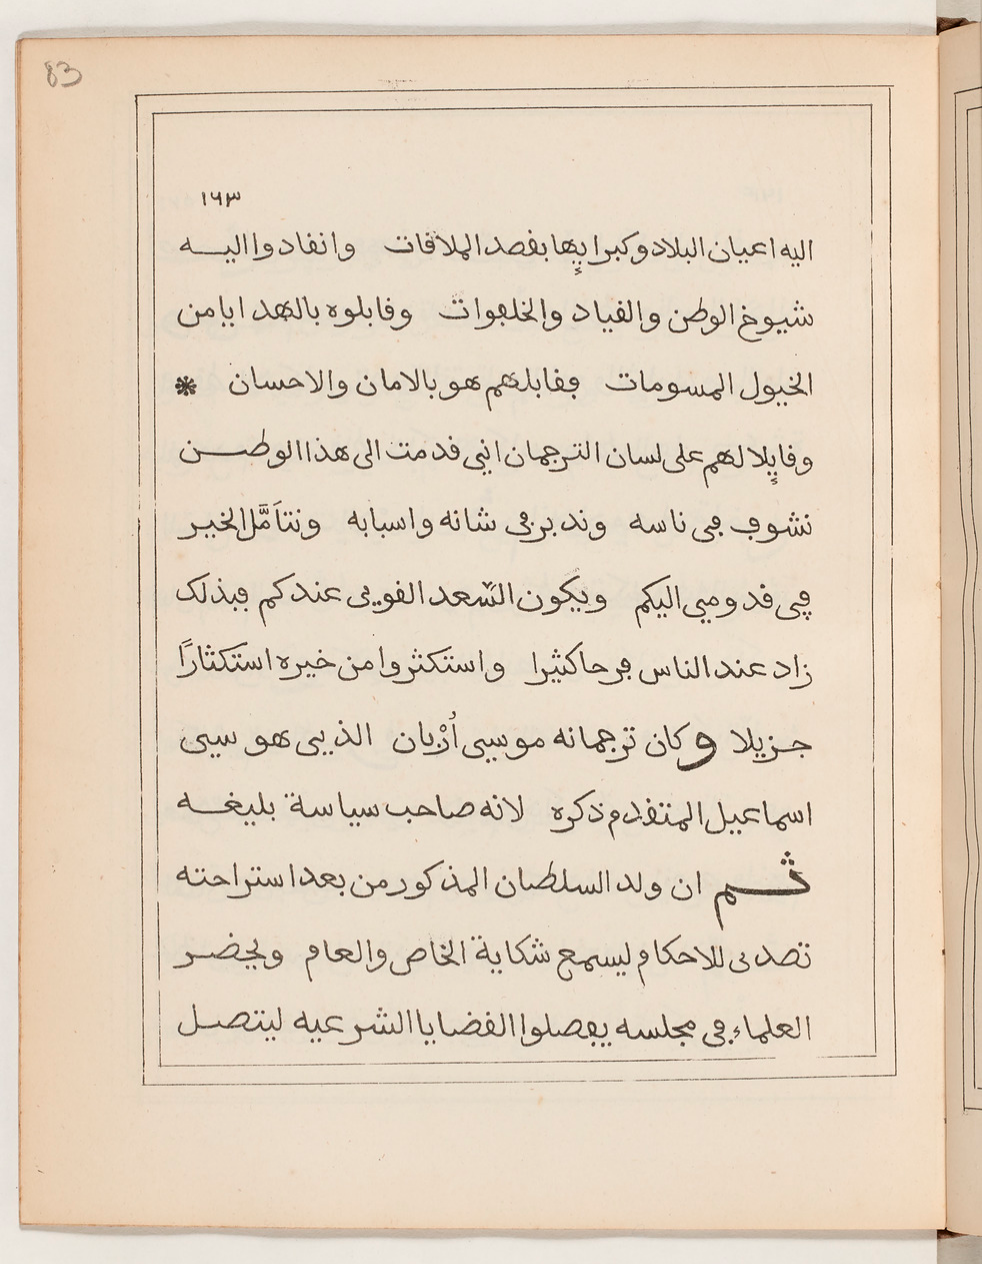 83
١٦٣
اليه اعيان البلاد وكبرايها بقصد الملاقات وانقادوا اليه
شيوخ الوطن والقياد والخلفوات وقابلوه بالهدايا من
الخيول المسومات فقابلهم هو بالامان والاحسان *
وقايلا لهم على لسان الترجمان انني قدمت الى هذا الوطن
نشوف في ناسه وندبر في شانه واسبابه ونتأمّل الخير
في قدومي اليكم ويكون السّعد القوي عندكم فبذلك
زاد عند الناس فرحا كثيرا واستكثروا من خيره استكثارًا
جزيلا وكان ترجمانه موسي أُرْبان الذي هو سي
اسماعيل المتقدم ذكره لانه صاحب سياسة بليغه
ثم ان ولد السلطان المذكور من بعد استراحته
تصدى للاحكام ليسمع شكاية الخاص والعام ويحضر
العلماء في مجلسه يفصلوا القضايا الشرعيه ليتصل